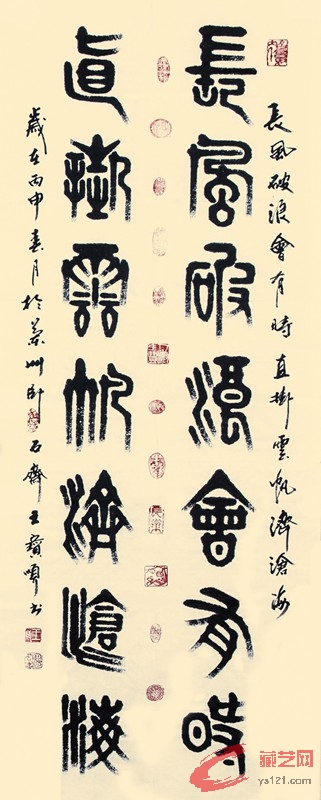 長風破浪會有時直掛雲帆濟滄海
長風破浪會有時
直掛雲帆濟滄海
歲在丙申春月於蘭州卧石齋王寶
藏艺网
ys121.com